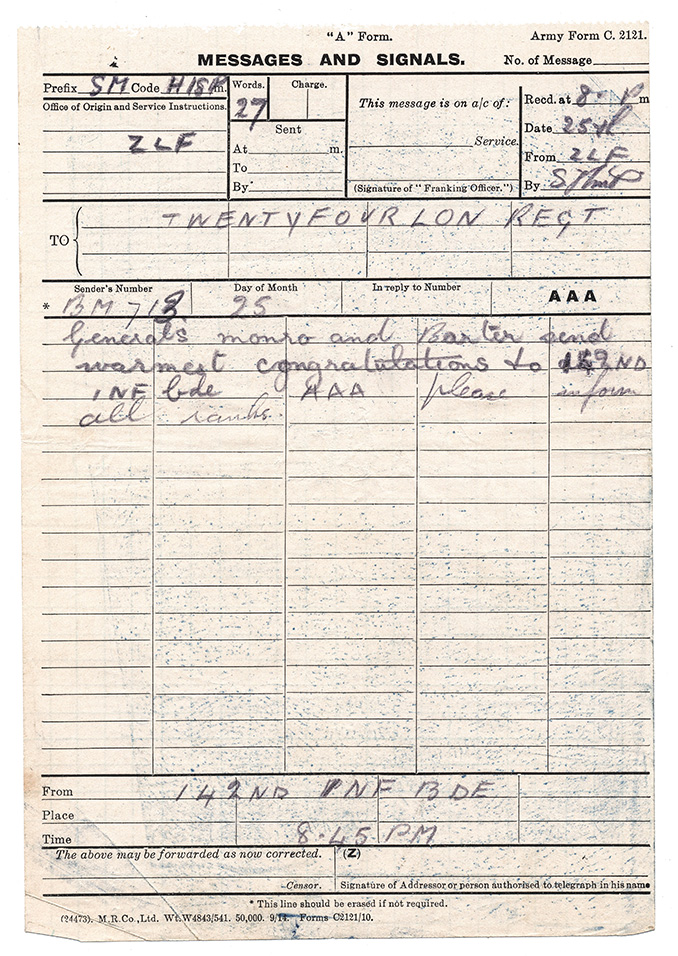 "A" Form.
Army Form C. 2121.
MESSAGES AND SIGNALS.
No. of Message
Prefix SM Code m.
Words.
27
Charge.
This message is on a/c of:
Recd. at 8 P m
Office of Origin and Service Instructions.
ZLF
Sent
At m.
To
By
Service.
(Signature of "Franking Officer.")
Date 25th
From ZLF
By
TO TWENTYFOUR LON REGT
Sender's Number
Day of Month
In reply to Number
AAA
* BM 713
25
Generals monro and Barter send
warmest congratulations to 142ND
INF bde AAA please inform
all ranks.
From 142ND INF BDE
Place
Time 8.45 PM
The above may be forwarded as now corrected.
(Z)
Censor.
Signature of Addressor or person authorised to telegraph in his name
* This line should be erased if not required.
(24473). M.R.Co.,Ltd. Wt.W4843/541. 50,000. 9/14. Forms C2121/10.